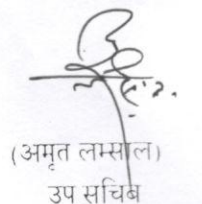 (अमृत लम्साल)
उप सचिब